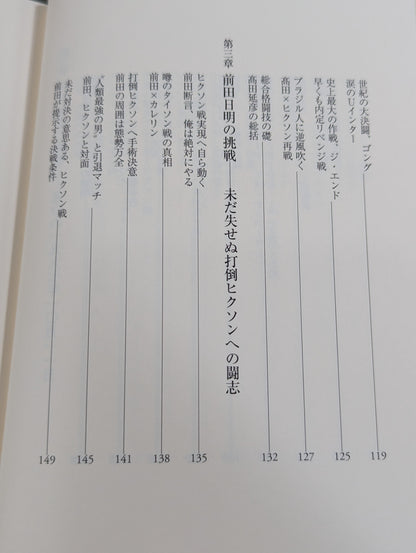 世紀の大決闘、ゴング
涙のUインター
119
史上最大の作戦、ジ・エンド
早くも内定リベンジ戦
125
ブラジル人に逆風吹く
髙田×ヒクソン再戦
127
総合格闘技の礎
髙田延彦の総括
132
第三章 前田日明の挑戦 未だ失せぬ打倒ヒクソンへの闘志
ヒクソン戦実現へ自ら動く
前田断言、俺は絶対にやる
135
噂のタイソン戦の真相
前田×カレリン
138
打倒ヒクソンへ手術決意
前田の周囲は態勢万全
141
“人類最強の男”と引退マッチ
前田、ヒクソンと対面
145
未だ対決の意思ある、ヒクソン戦
前田が提示する決戦条件
149